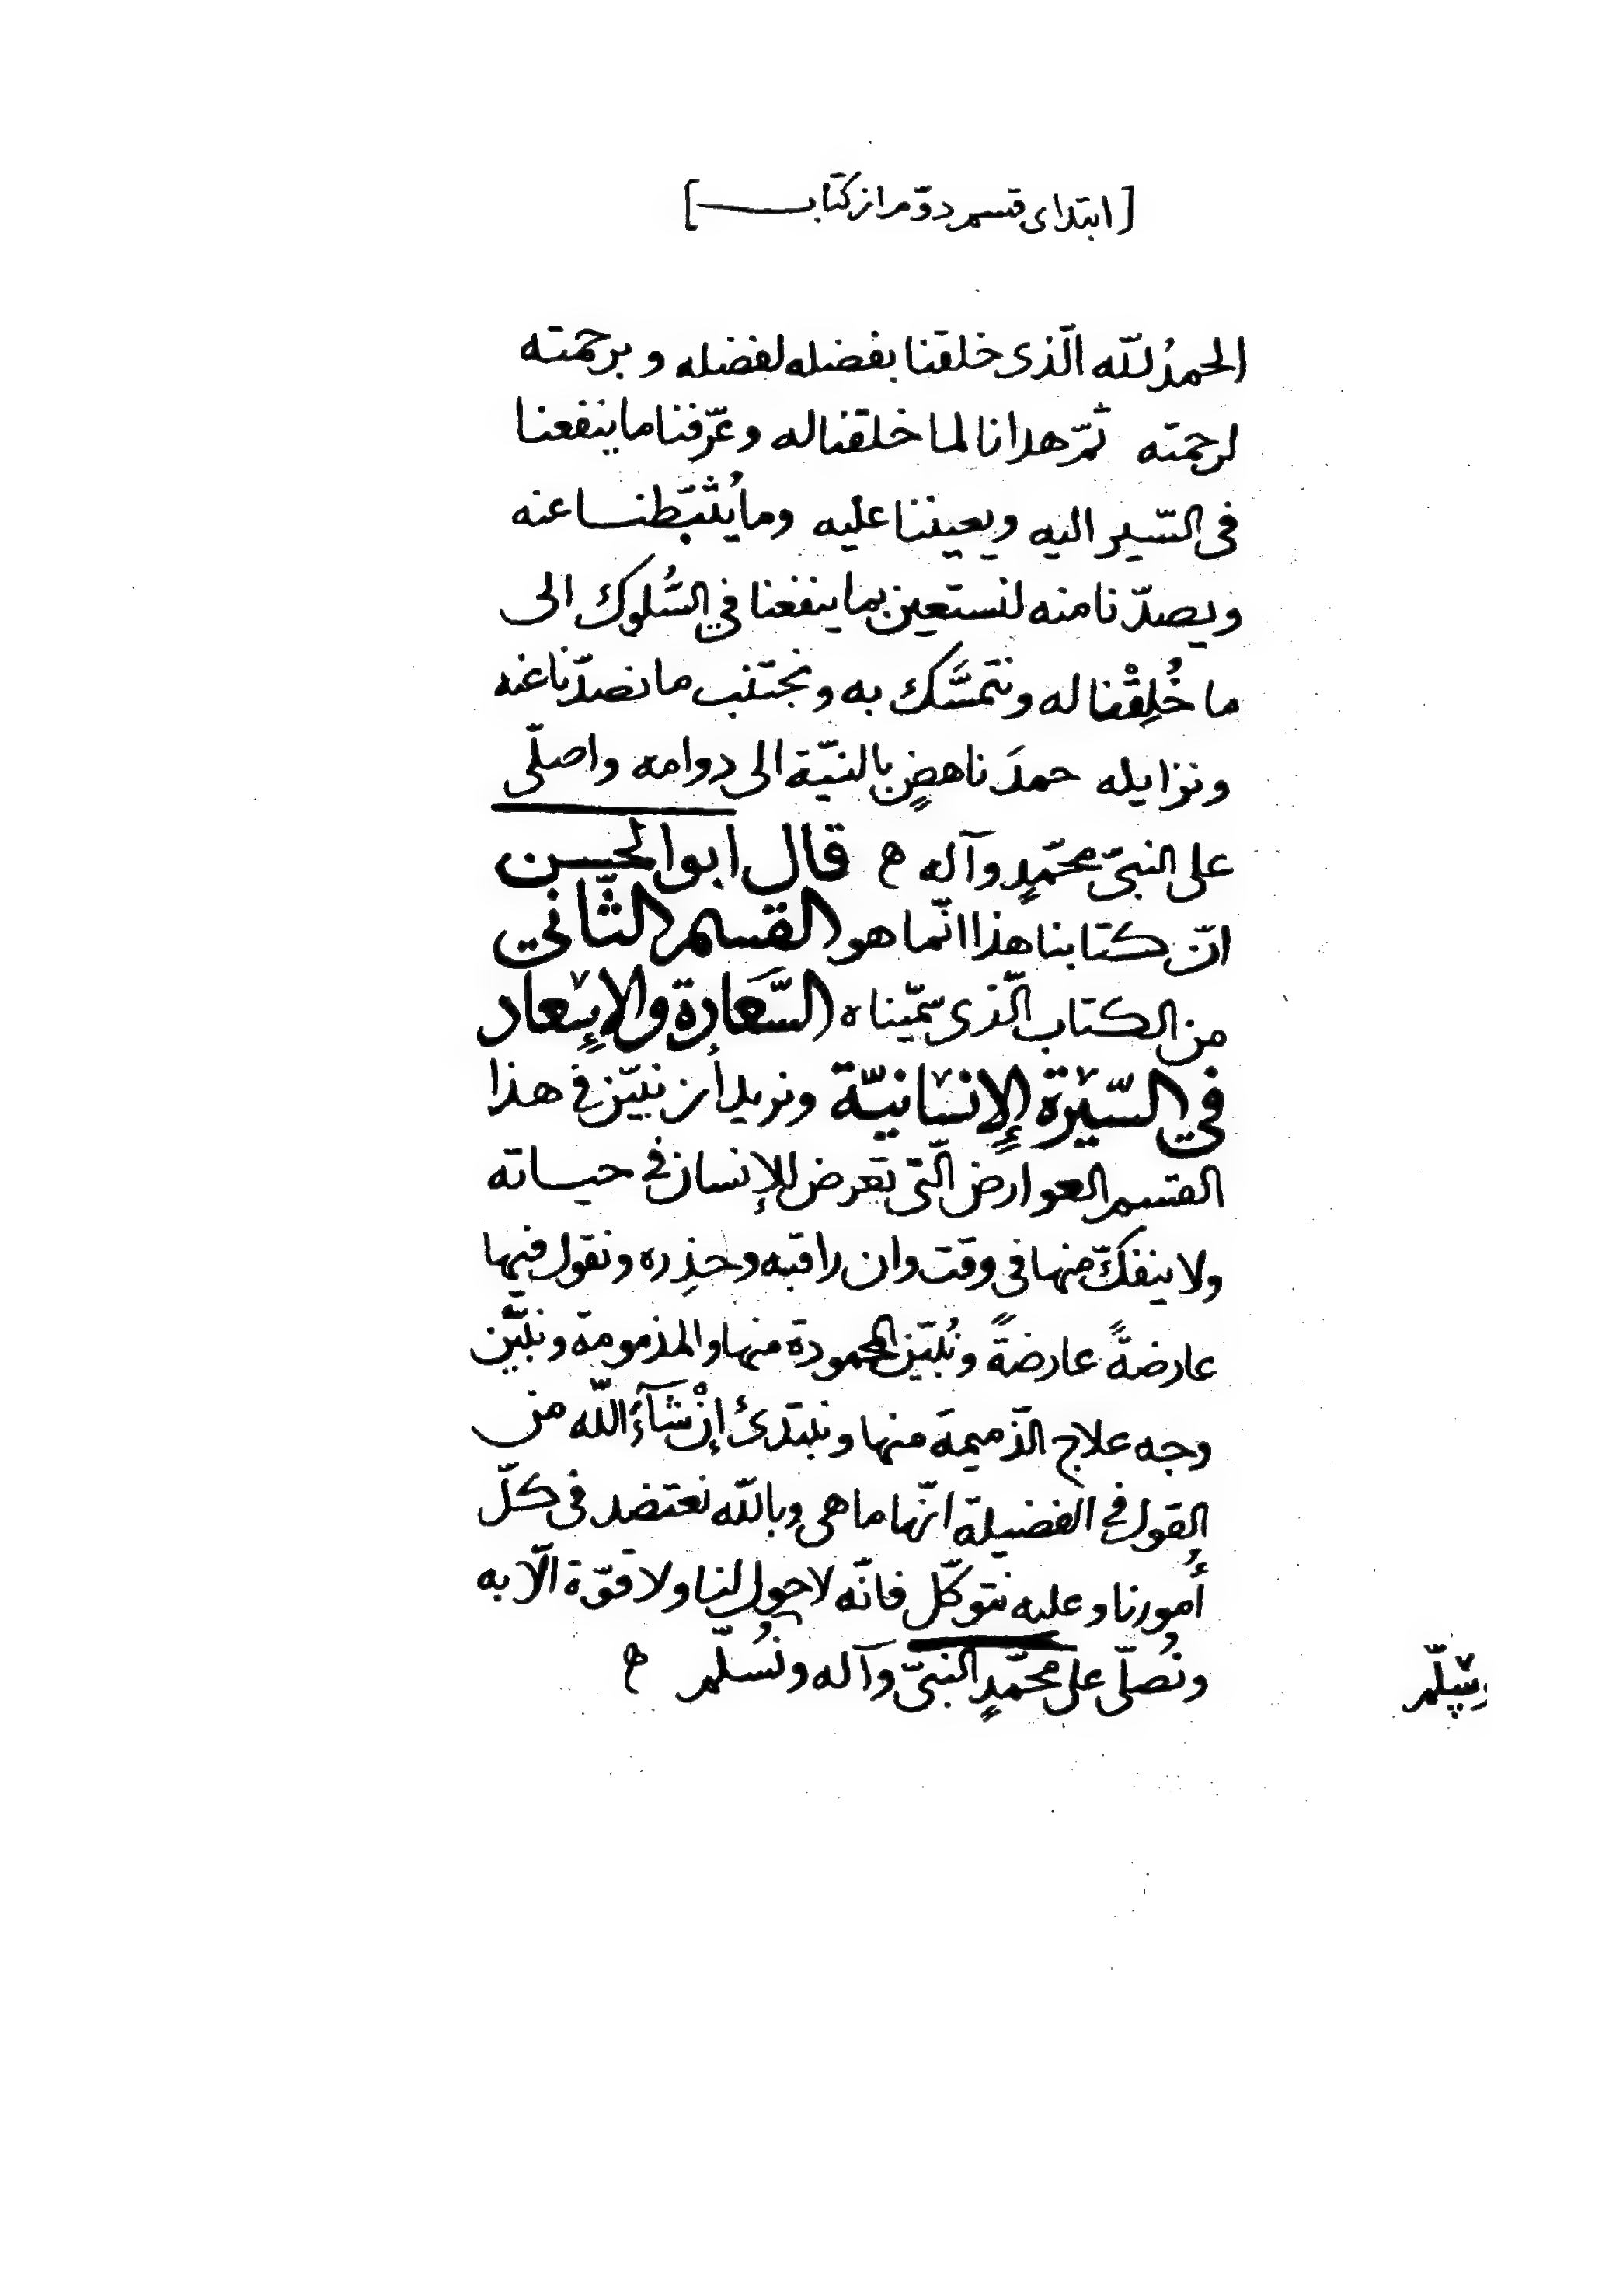 [ابتدای قسم دوّم از کتاب]
الحمدُ للّه الّذى خلقنا بفضله لفضله وبرحمته
لرحمته ثمّ هدانا لما خلقنا له وعرّفنا ما ينفعنا
فى السّير اليه ويعيننا عليه وما يُثبّطنا عنه
ويصدّنا منه لنستعين بما ينفعنا في السُّلوك الى
ما خُلِقْنا له ونتمسَّك به ونجتنب ما نصدّنا عنه
ونزايله حمدَ ناهضٍ بالنيّة الى دوامه واصلّى
على النبىّ محمّدٍ وآله ه قال ابوالحسن
انّ كتابنا هذا انّما هو القسم الثّاني
من الكتاب الّذى سمّيناه السَّعادة والإسعاد
في السّيرة الإنسانيّة ونريد أن نبيّن فى هذا
القسم العوارض الّتى تعرض للإنسان فى حياته
ولا ينفكّ منها فى وقت وان راقبه وحذِره ونقول فيها
عارضةً عارضةً ونُبيّن المحمودة منها والمذمومة ونبيّن
وجه علاج الذّميمة منها ونبتدئ إنْ شآءَ اللّه من
القول فى الفضيلة انّها ما هى وباللّه نعتضد فى كلّ
أُمورنا وعليه نتوكّل فانّه لا حول لنا ولا قوّة الّا به
ونُصلّى على محمّدٍ النبىّ وآله ونُسلّم ه
وسلّم